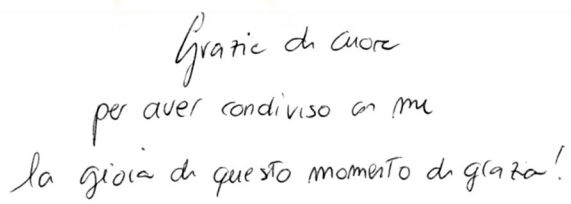 Grazie di cuore
per aver condiviso con me
la gioia di questo momento di grazia!